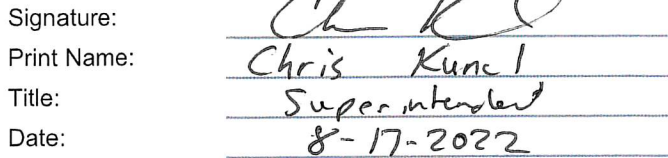 Signature:
Print Name: Chris Kuncl
Title: Superintendent
Date: 8-17-2022